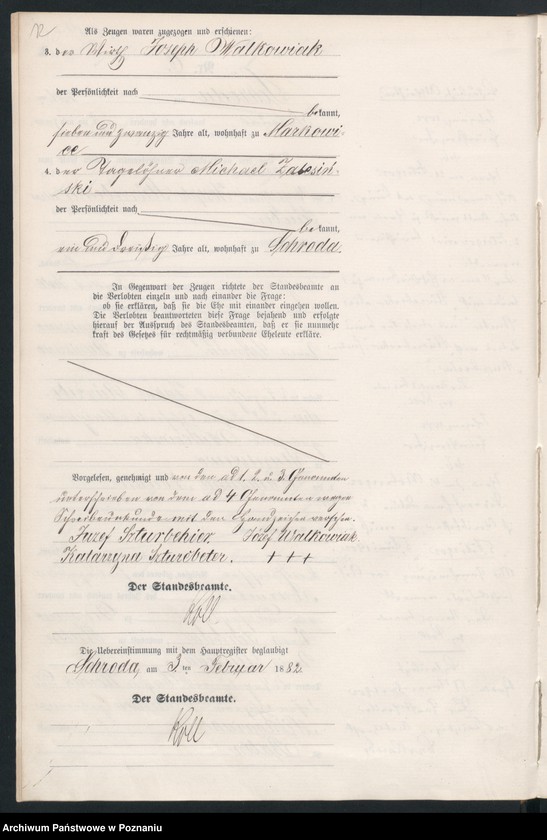 12
Als Zeugen waren zugezogen und erschienen:
3. der Wirth Joseph Walkowiak
der Persönlichkeit nach
bekannt,
sieben und zwanzig Jahre alt, wohnhaft zu Markowi-
ce
4. der Tagelöhner Michael Zalesiń-
ski
der Persönlichkeit nach
bekannt,
ein und dreißig Jahre alt, wohnhaft zu Schroda.
In Gegenwart der Zeugen richtete der Standesbeamte an
die Verlobten einzeln und nach einander die Frage:
ob sie erklären, daß sie die Ehe mit einander eingehen wollen.
Die Verlobten beantworteten diese Frage bejahend und erfolgte
hierauf der Ausspruch des Standesbeamten, daß er sie nunmehr
kraft des Gesetzes für rechtmäßig verbundene Eheleute erkläre.
Vorgelesen, genehmigt und von den ad 1. 2. u 3. Genannten
unterschrieben von dem ad 4 Genannten wegen
Schreibunkunde mit den Handzeichen versehen.
Józef Walkowiak
Katarzyna + + +
Der Standesbeamte.
Koll
Die Uebereinstimmung mit dem Hauptregister beglaubigt
Schroda, am 3 ten Februar 1882.
Der Standesbeamte.
Koll
Archiwum Państwowe w Poznaniu